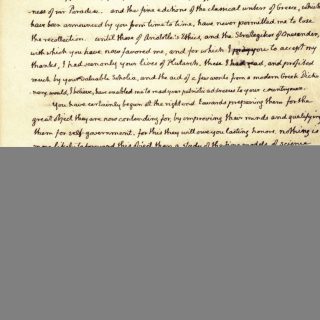 ness of our Paradise. and the fine editions of the classical writers of Greece, which
have been announced by you from time to time, have never permitted me to lose
the recollection. until those of Aristotle's Ethics, and the Strategicos of Onesander,
with which you have now favored me, and for which I pray you to accept my
thanks, I had seen only your lives of Plutarch. these I had read, and profited
much by your valuable Scholia, and the aid of a few words from a modern Greek Dictio-
nary would, I believe, have enabled me to read your patriotic addresses to your countrymen.
You have certainly begun at the right end towards preparing them for the
great object they are now contending for, by improving their minds and qualifying
them for self-government. for this they will owe you lasting honors. nothing is
more likely to forward this object than a study of the fine models of science